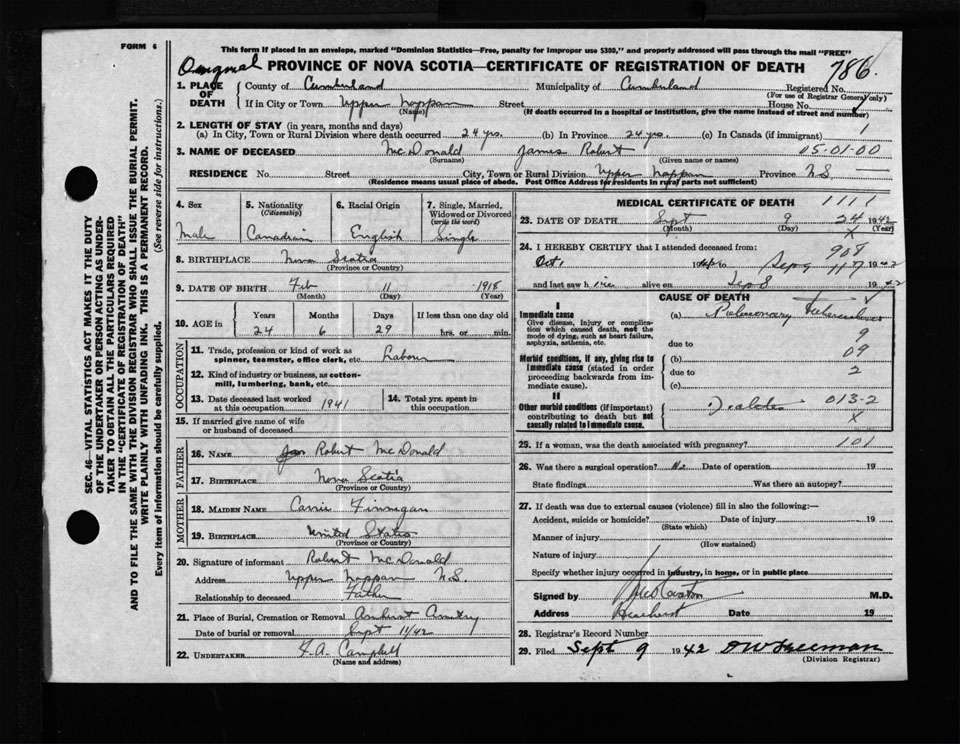 FORM 6
This form if placed in an envelope, marked "Dominion Statistics—Free, penalty for improper use $300," and properly addressed will pass through the mail "FREE"
Original PROVINCE OF NOVA SCOTIA—CERTIFICATE OF REGISTRATION OF DEATH 786.
1. PLACE OF DEATH County of Cumberland Municipality of Cumberland Registered No.
(For use of Registrar General only)
If in City or Town Upper Nappan Street House No.
(Name) (If death occurred in a hospital or institution, give the name instead of street and number)
2. LENGTH OF STAY (in years, months and days)
(a) In City, Town or Rural Division where death occurred 24 yrs. (b) In Province 24 yrs. (c) In Canada (if immigrant) 1
3. NAME OF DECEASED McDonald James Robert 05-01-00
(Surname) (Given name or names)
RESIDENCE No. Street City, Town or Rural Division Upper Nappan Province N.S.
(Residence means usual place of abode. Post Office Address for residents in rural parts not sufficient)
4. Sex Male
5. Nationality (Citizenship) Canadian
6. Racial Origin English
7. Single, Married, Widowed or Divorced (write the word) Single
8. BIRTHPLACE Nova Scotia
(Province or Country)
9. DATE OF BIRTH Feb 11 1918
(Month) (Day) (Year)
10. AGE in Years Months Days If less than one day old
24 6 29 hrs. or min.
OCCUPATION
11. Trade, profession or kind of work as spinner, teamster, office clerk, etc. Labour
12. Kind of industry or business, as cotton-mill, lumbering, bank, etc.
13. Date deceased last worked at this occupation 1941
14. Total yrs. spent in this occupation
15. If married give name of wife or husband of deceased
FATHER
16. NAME Robert McDonald
17. BIRTHPLACE Nova Scotia
(Province or Country)
MOTHER
18. MAIDEN NAME Carrie Finnigan
19. BIRTHPLACE United States
(Province or Country)
20. Signature of informant Robert McDonald
Address Upper Nappan N.S.
Relationship to deceased Father
21. Place of Burial, Cremation or Removal Amherst Cemtry
Date of burial or removal Sept 11/42
22. UNDERTAKER F.A. Campbell
(Name and address)
MEDICAL CERTIFICATE OF DEATH 1111
23. DATE OF DEATH Sept 9 24 1942
(Month) (Day) X (Year)
24. I HEREBY CERTIFY that I attended deceased from: 908
Oct 1 19 to Sep 9 117 1942
and last saw h alive on Sep 8 1942
CAUSE OF DEATH
I
Immediate cause
Give disease, injury or complication which caused death, not the mode of dying, such as heart failure, asphyxia, asthenia, etc.
(a) Pulmonary Tuberculosis
9
due to
Morbid conditions, if any, giving rise to immediate cause (stated in order proceeding backwards from immediate cause).
(b) 09
due to 2
(c)
II
Other morbid conditions (if important) contributing to death but not causally related to immediate cause.
013-2
X
25. If a woman, was the death associated with pregnancy? 101
26. Was there a surgical operation? No Date of operation 19
State findings Was there an autopsy?
27. If death was due to external causes (violence) fill in also the following:—
Accident, suicide or homicide? Date of injury 19
(State which)
Manner of injury
(How sustained)
Nature of injury
Specify whether injury occurred in industry, in home, or in public place
Signed by M.D.
Address Amherst Date 19
28. Registrar's Record Number
29. Filed Sept 9 1942 DW Freeman
(Division Registrar)
SEC. 46—VITAL STATISTICS ACT MAKES IT THE DUTY
OF THE UNDERTAKER OR PERSON ACTING AS UNDER-
TAKER TO OBTAIN ALL THE PARTICULARS REQUIRED
IN THE "CERTIFICATE OF REGISTRATION OF DEATH"
AND TO FILE THE SAME WITH THE DIVISION REGISTRAR WHO SHALL ISSUE THE BURIAL PERMIT.
WRITE PLAINLY WITH UNFADING INK. THIS IS A PERMANENT RECORD.
Every item of information should be carefully supplied. (See reverse side for instructions.)